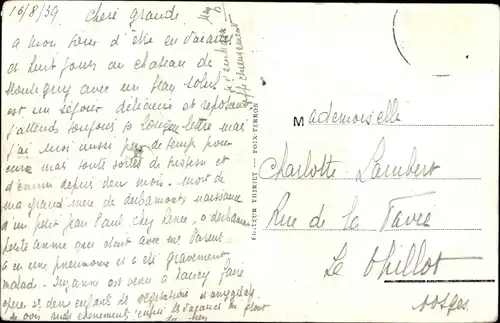 16/8/39 Chère grande
a mon tour d'être en vacances
et huit jours au chateau de
Montaguy avec un beau soleil
est un séjour délicieux et reposant
j'attends toujours ta longue lettre mais
j'ai moi aussi peu de temps pour
mais toute sortes de tristesse et
d'ennuis depuis deux mois. mort de
ma grand'mère de derbamont naissance
d'un petit Jean Paul chez Renée, à derbamont
petite annie qui était avec mes Parents
a eu une pneumonie et a été gravement
malade. Suzanne est venu à Nancy faire
opérer ses deux enfants de végétations et amygdales
je t'embrasse
affectueusement
EDITEUR THIRIET — POIX-TERRON
Mademoiselle
Charlotte Lambert
Rue de la Favée
Le Thillot
Vosges